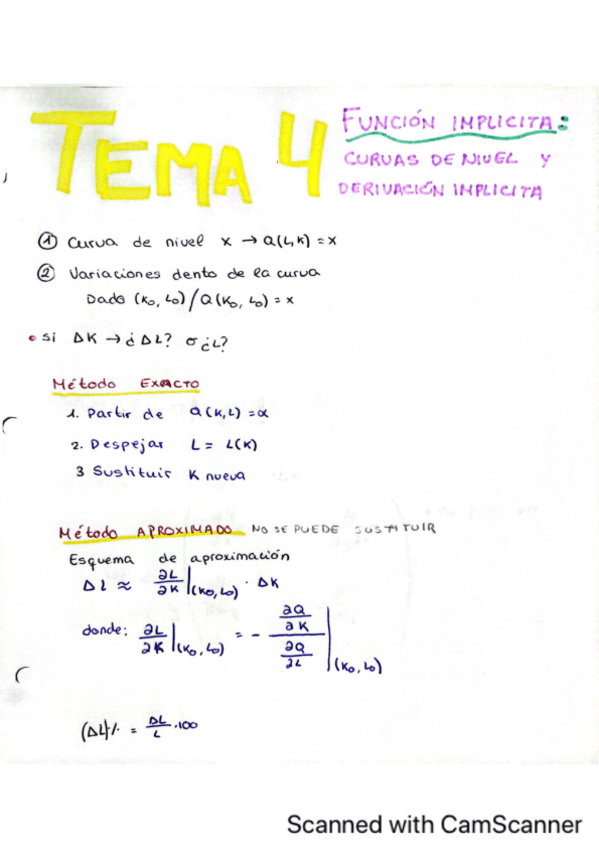 TEMA 4
FUNCIÓN IMPLICITA:
CURVAS DE NIVEL Y
DERIVACIÓN IMPLICITA
① Curva de nivel x → Q(L,K) = x
② Variaciones dento de la curva
Dado (K₀, L₀) / Q(K₀, L₀) = x
• Si ΔK → ¿ΔL? o ¿L?
Método EXACTO
1. Partir de Q(K,L) = α
2. Despejar L = L(K)
3 Sustituir K nueva
Método APROXIMADO NO SE PUEDE SUSTITUIR
Esquema de aproximación
ΔL ≈ ∂L/∂K |(K₀, L₀) · ΔK
donde: ∂L/∂K |(K₀, L₀) = - (∂Q/∂K)/(∂Q/∂L) |(K₀, L₀)
(ΔL)% = ΔL/L · 100
Scanned with CamScanner